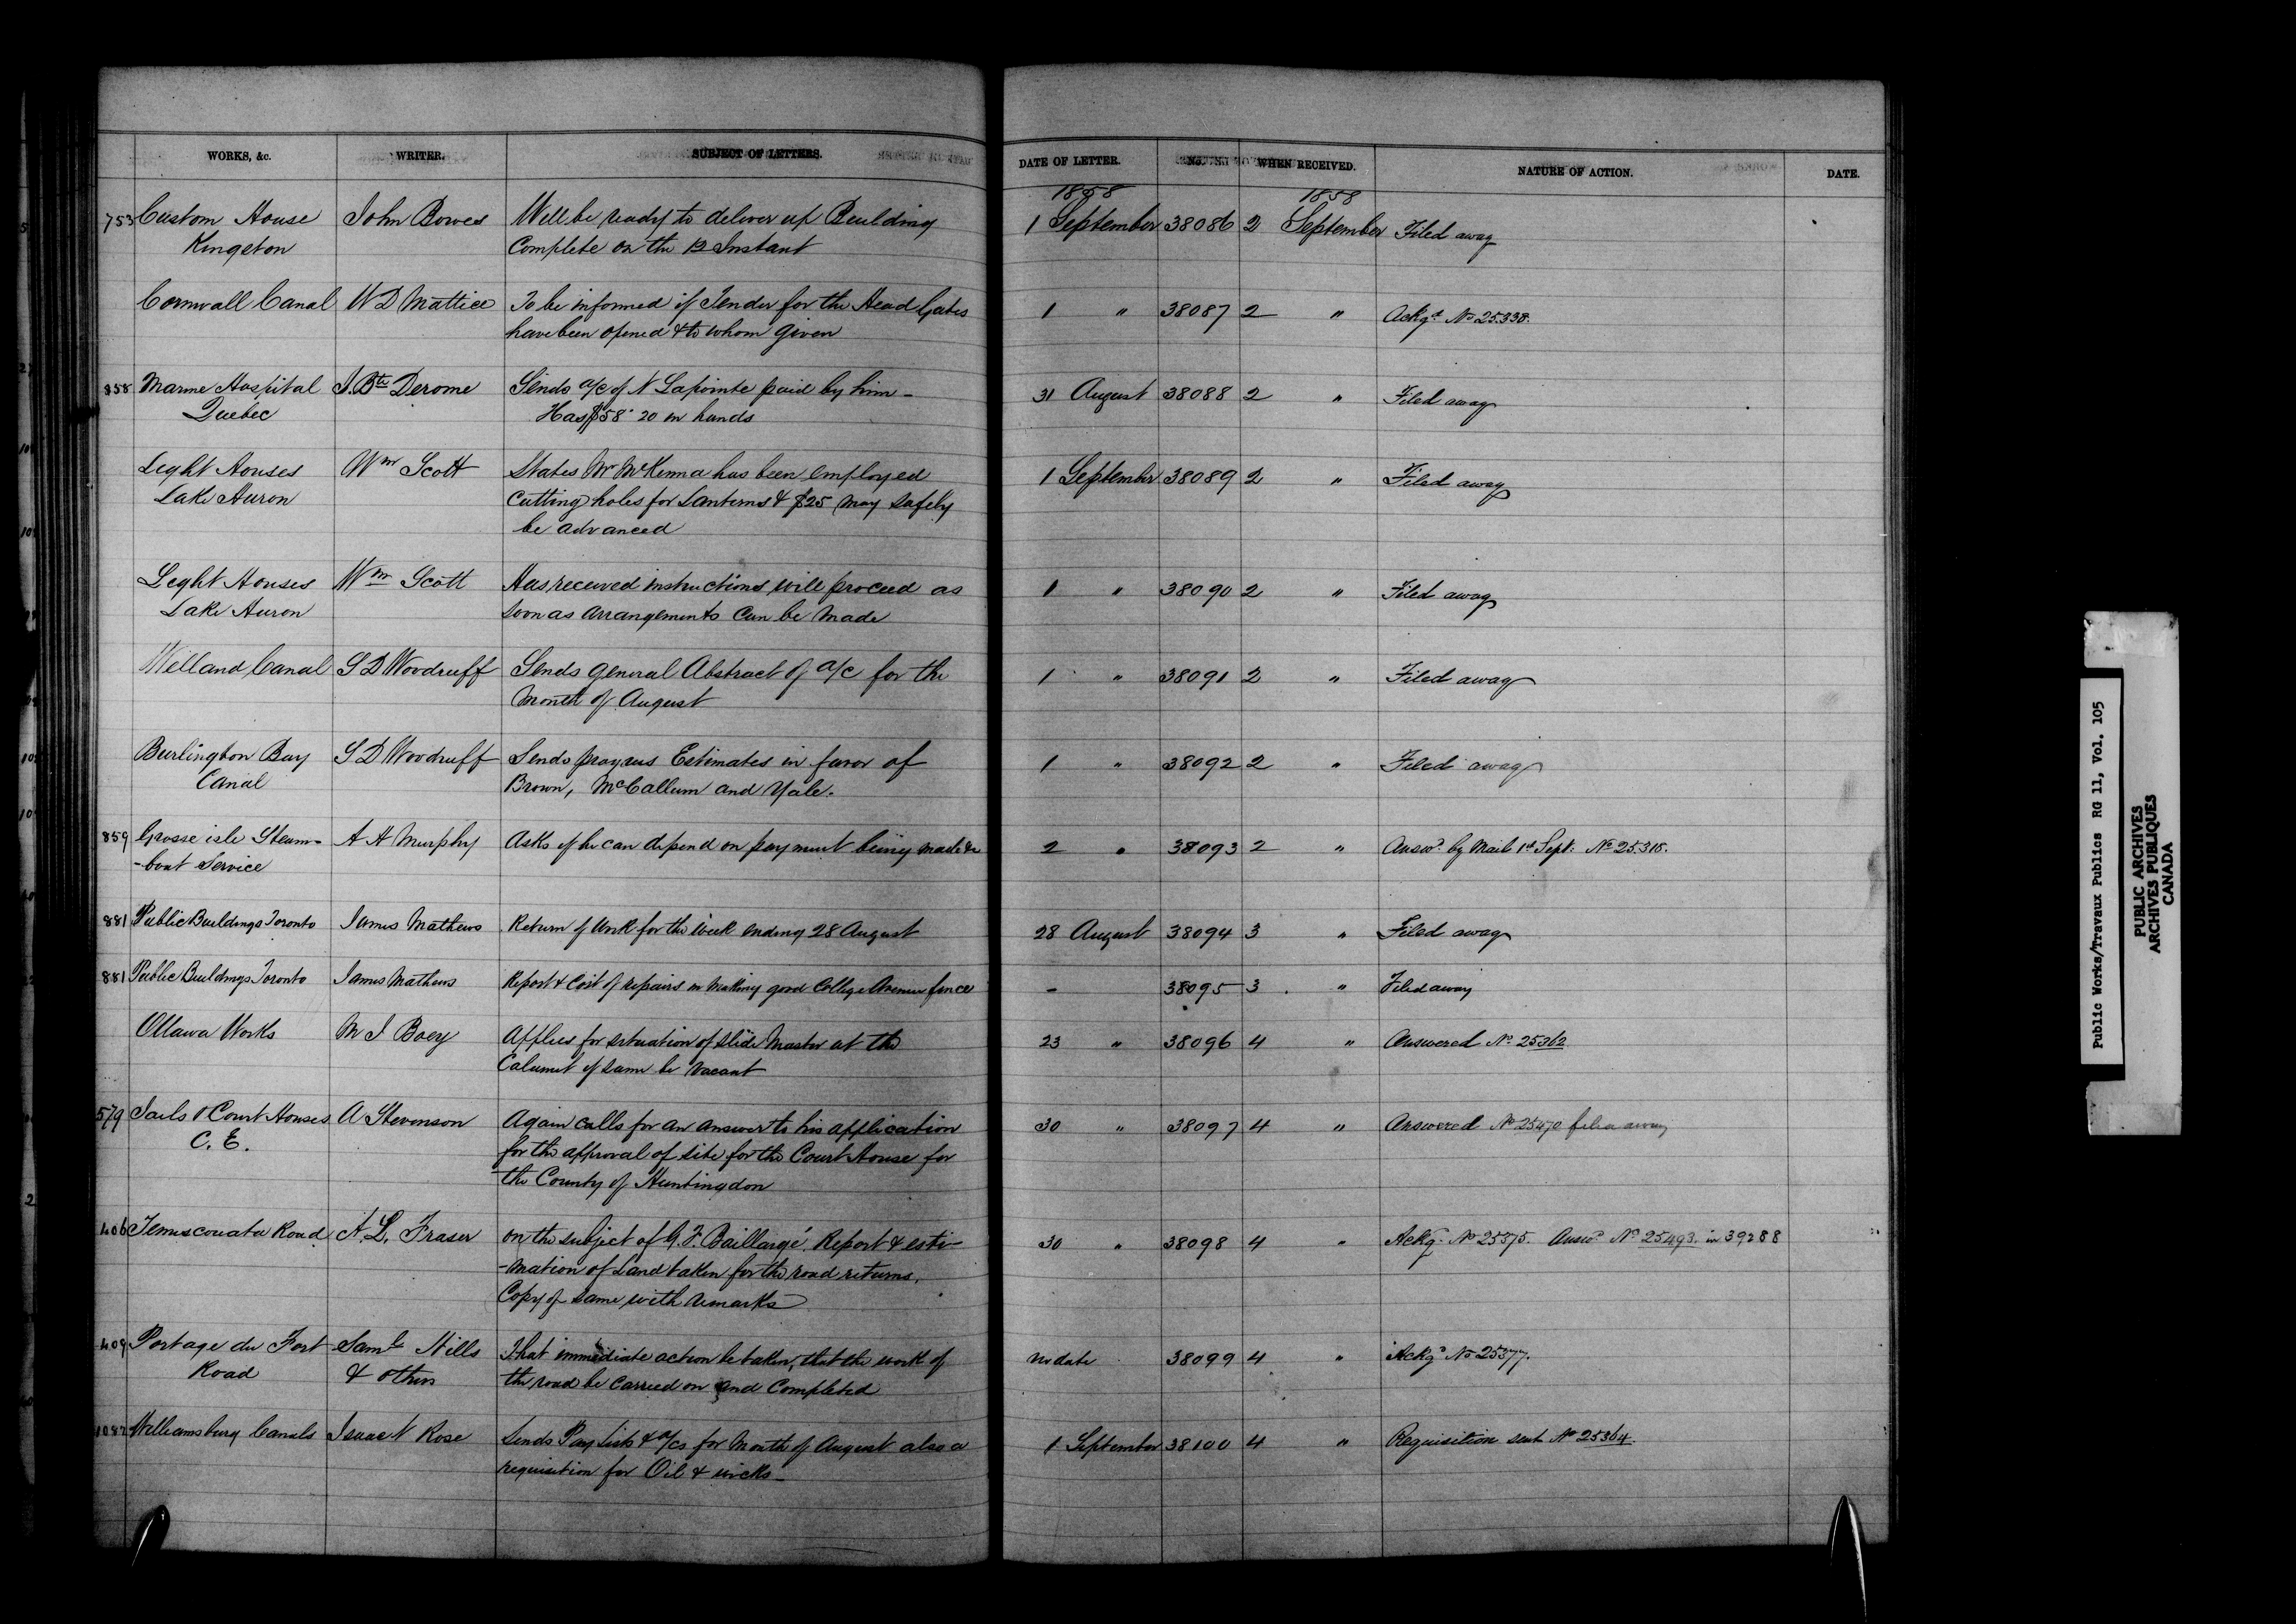 WORKS, &c. WRITER. SUBJECT OF LETTERS. DATE OF LETTER. NO. WHEN RECEIVED. NATURE OF ACTION. DATE.
1858 1858
753 Custom House John Bowes Will be ready to deliver up Building 1 September 38086 2 September Filed away
Kingston Complete on the 12 Instant
Cornwall Canal W D Mattice To be informed if Tender for the Head Gates 1 " 38087 2 " Ackgd No 25338.
have been opened & to whom given
858 Marine Hospital J. Bte Derome Sends a/c of N Lapointe paid by him - 31 August 38088 2 " Filed away
Quebec Has $58.20 on hands
Light Houses Wm Scott States Mr McKenna has been employed 1 September 38089 2 " Filed away
Lake Huron Cutting holes for Lanterns & $25 may safely
be advanced
Light Houses Wm Scott Has received instructions will proceed as 1 " 38090 2 " Filed away
Lake Huron soon as arrangements can be made
Welland Canal S D Woodruff Sends General Abstract of a/c for the 1 " 38091 2 " Filed away
Month of August
Burlington Bay S D Woodruff Sends progress Estimates in favor of 1 " 38092 2 " Filed away
Canal Brown, McCallum and Yale.
859 Grosse isle Steam- A H Murphy Asks if he can depend on payment being made &c 2 " 38093 2 " Answd by Mail 1st Sept. No 25318.
-boat Service
881 Public Buildings Toronto James Mathews Return of Work for the week ending 28 August 28 August 38094 3 " Filed away
881 Public Buildings Toronto James Mathews Report & Cost of repairs in making good College Avenue fence - 38095 3 " Filed away
Ottawa Works M J Boey Applies for situation of slide Master at the 23 " 38096 4 " Answered No 25362
Calumet if same be vacant
579 Jails & Court Houses A Stevenson Again calls for an answer to his application 30 " 38097 4 " Answered No 25470 filed away
C. E. for the approval of site for the Court House for
the County of Huntingdon
406 Temiscouata Road A. L. Fraser On the subject of G. F. Baillargé Report & esti- 30 " 38098 4 " Ackgd No 25375. Answd No 25493. in 39288
-mation of Land taken for the road returns.
Copy of same with remarks
409 Portage du Fort Saml Hills That immediate action be taken, that the work of no date 38099 4 " Ackgd No 25377.
Road & others the road be carried on and completed
1087 Williamsburg Canals Isaac N Rose Sends Pay Lists & a/cs for Month of August also a 1 September 38100 4 " Requisition sent No 25364.
requisition for Oil & wicks -
Public Works/Travaux Publics RG 11, Vol. 105
PUBLIC ARCHIVES
ARCHIVES PUBLIQUES
CANADA